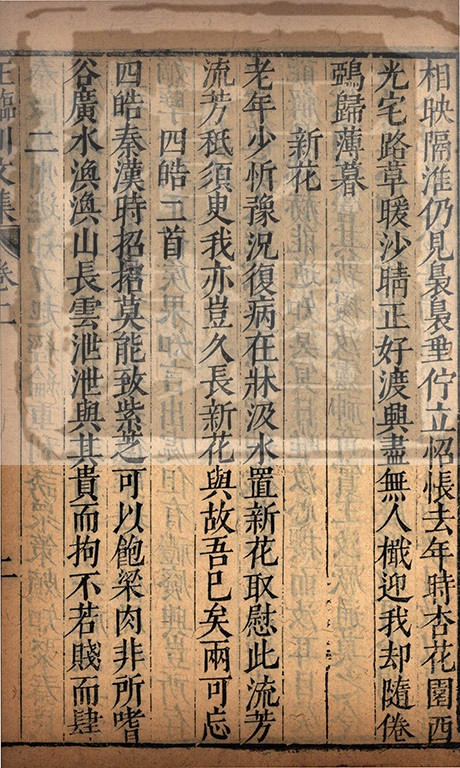 相映隔淮仍見裊裊垂佇立怊悵去年時杏花園西
光宅路草暖沙晴正好渡興盡無人檝迎我却隨倦
鵶歸薄暮
新花
老年少忻豫況復病在牀汲水置新花取慰此流芳
流芳秪須臾我亦豈久長新花與故吾已矣兩可忘
四皓二首
四皓秦漢時招招莫能致紫芝可以飽粱肉非所嗜
谷廣水渙渙山長雲泄泄與其貴而拘不若賤而肆
二
王臨川文集 卷二
二